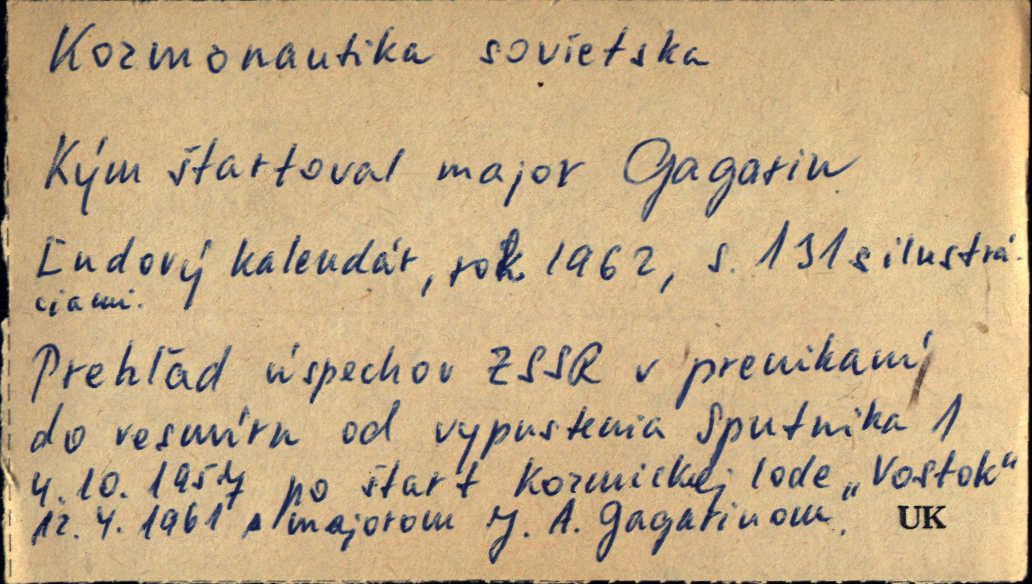 Kozmonautika sovietska
Kým štartoval major Gagarin
Ľudový kalendár, rok 1962, s. 131 s ilustrá-
ciami.
Prehľad úspechov ZSSR v prenikaní
do vesmíru od vypustenia Sputnika 1
4.10.1957 po štart kozmickej lode „Vostok"
12.4.1961 s majorom J. A. Gagarinom.
UK